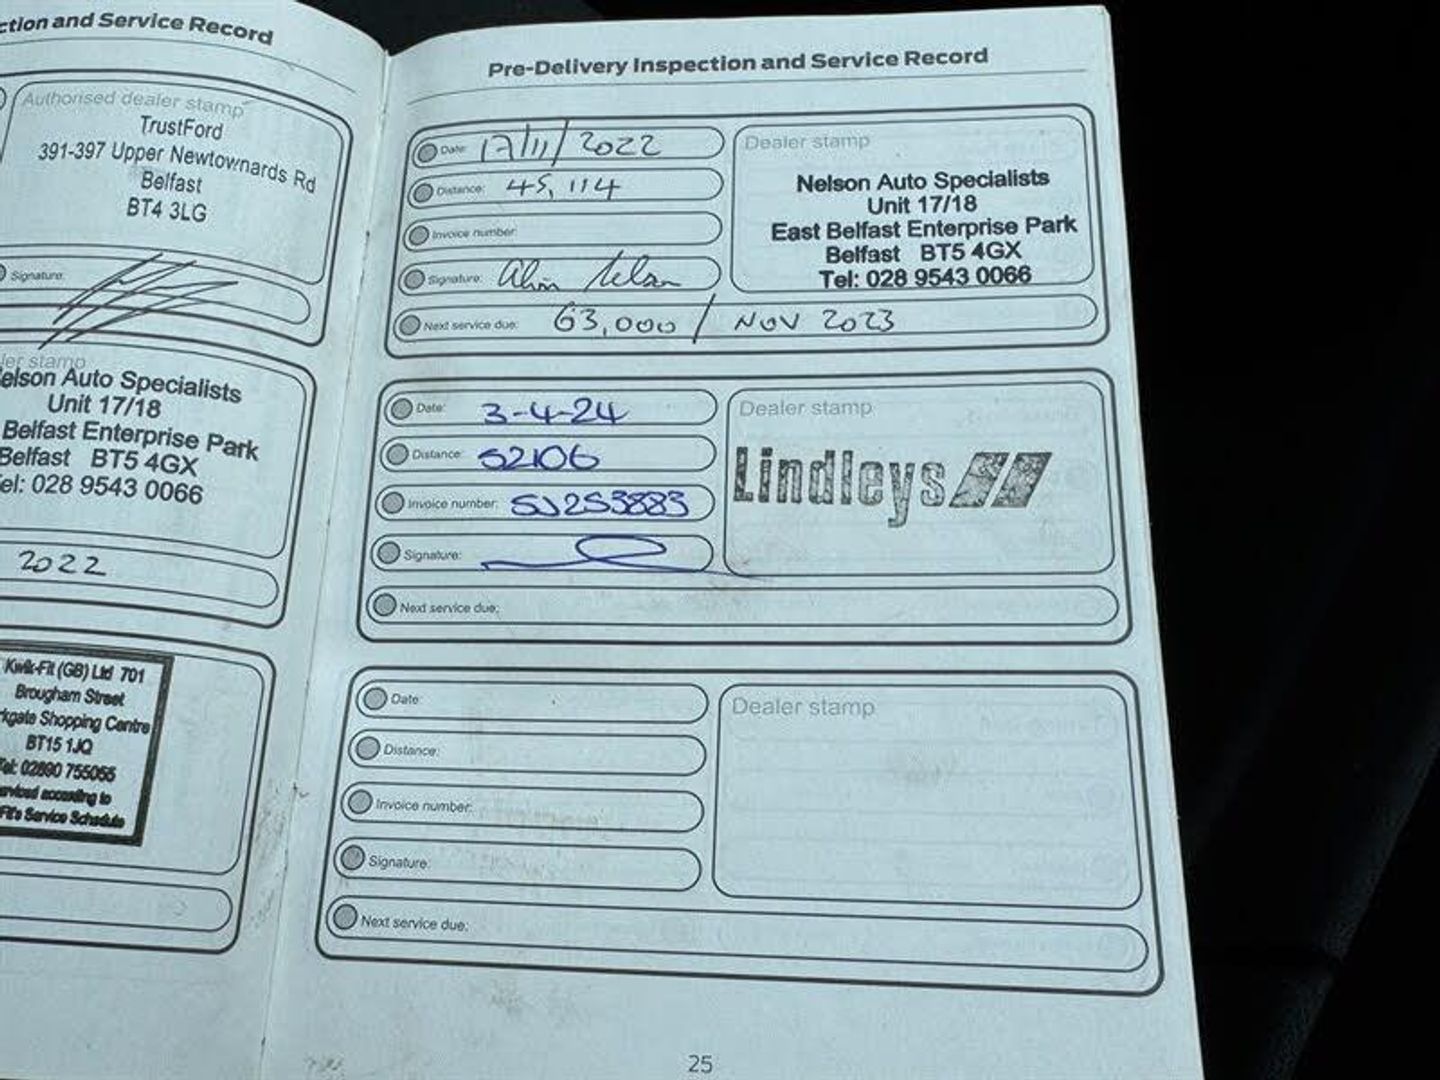 ction and Service Record
Authorised dealer stamp
TrustFord
391-397 Upper Newtownards Rd
Belfast
BT4 3LG
Signature:
ler stamp
elson Auto Specialists
Unit 17/18
Belfast Enterprise Park
Belfast BT5 4GX
el: 028 9543 0066
2022
Kwik-Fit (GB) Ltd 701
Brougham Street
rkgate Shopping Centre
BT15 1JQ
Tel: 02890 755055
erviced according to
Fit's Service Schedule
Pre-Delivery Inspection and Service Record
Date: 17/11/2022
Distance: 45,114
Invoice number:
Signature:
Next service due: 63,000 / NOV 2023
Dealer stamp
Nelson Auto Specialists
Unit 17/18
East Belfast Enterprise Park
Belfast BT5 4GX
Tel: 028 9543 0066
Date: 3-4-24
Distance: 52106
Invoice number: SJ253883
Signature:
Next service due:
Dealer stamp
Lindleys
Date:
Distance:
Invoice number:
Signature:
Next service due:
Dealer stamp
25